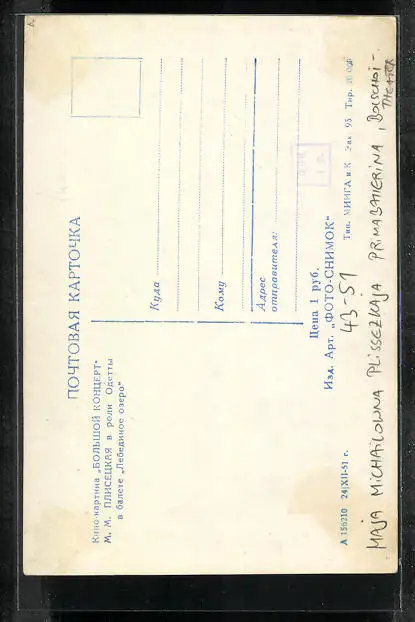 ПОЧТОВАЯ КАРТОЧКА
Кино-картина „БОЛЬШОЙ КОНЦЕРТ“
М. М. ПЛИСЕЦКАЯ в роли Одетты
в балете „Лебединое озеро“
Куда
Кому
Адрес
отправителя:
Цена 1 руб.
Изд. Арт. „ФОТО-СНИМОК“
43-51
А 156210 24/XII-51 г.
Тип. МИИГА и К Зак. 95 Тир.
MAJA MICHAILOWNA PLISSEZKAJA PRIMABALLERINA, BOLSCHOI-
THEATER